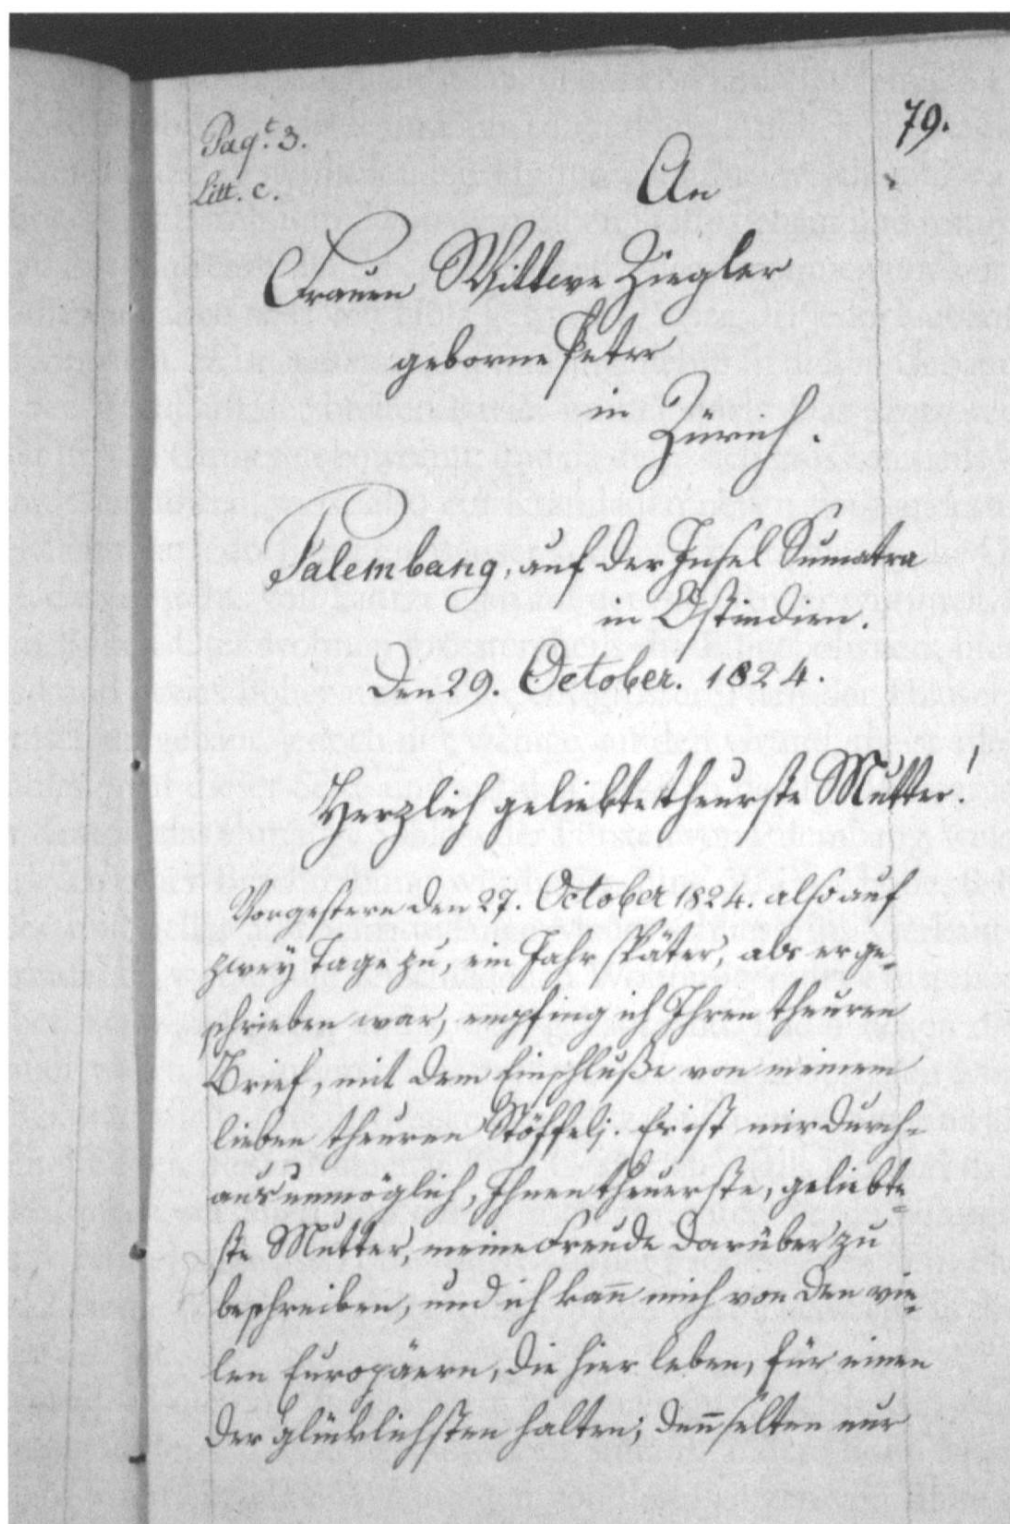 79.
Paq.t 3.
Litt. c.
An
Frauen Wittwe Ziegler
geborne Peter
in
Zürich.
Palembang, auf der Insel Sumatra
in Ostindien.
Den 29. October. 1824.
Herzlich geliebte theurste Mutter!
Vorgestern den 27. October 1824. also auf
zwey Tage zu, ein Jahr später, als er ge-
schrieben war, empfing ich Ihren theuren
Brief, mit dem Einschluße von meinem
lieben theuren Stöffeli. Er ist mir durch-
aus unmöglich, Ihnen theuerste, geliebte-
ste Mutter, meine Freude darüber zu
beschreiben, und ich kan̄ mich von den vie-
len Europäern, die hier leben, für einen
der glücklichsten halten; den̄ selten nur